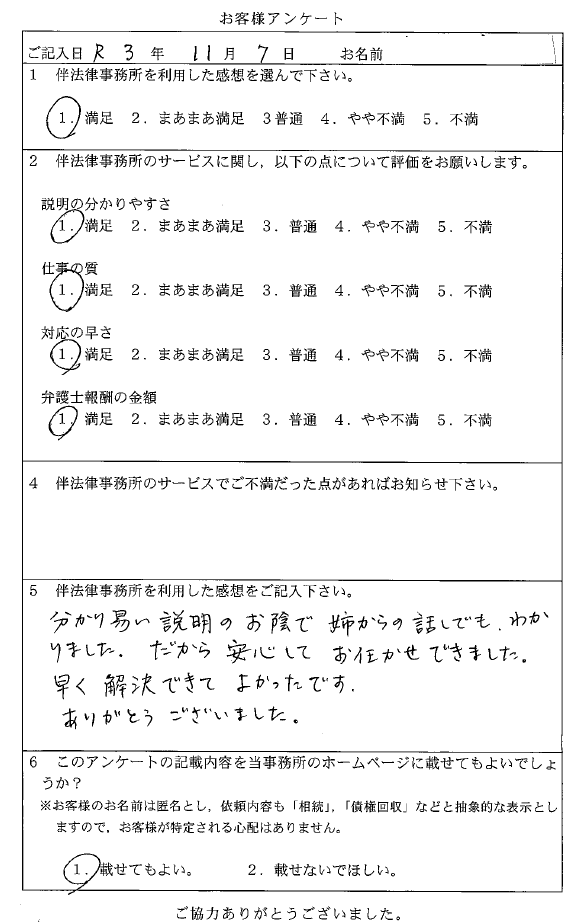 お客様アンケート
ご記入日 R 3 年 11 月 7 日 お名前
1 伴法律事務所を利用した感想を選んで下さい。
1. 満足 2. まあまあ満足 3普通 4. やや不満 5. 不満
2 伴法律事務所のサービスに関し，以下の点について評価をお願いします。
説明の分かりやすさ
1. 満足 2. まあまあ満足 3. 普通 4. やや不満 5. 不満
仕事の質
1. 満足 2. まあまあ満足 3. 普通 4. やや不満 5. 不満
対応の早さ
1. 満足 2. まあまあ満足 3. 普通 4. やや不満 5. 不満
弁護士報酬の金額
1. 満足 2. まあまあ満足 3. 普通 4. やや不満 5. 不満
4 伴法律事務所のサービスでご不満だった点があればお知らせ下さい。
5 伴法律事務所を利用した感想をご記入下さい。
分かり易い説明のお陰で 姉からの話しでも、わか
りました. だから 安心して お任かせできました。
早く 解決できて よかったです.
ありがとう ございました。
6 このアンケートの記載内容を当事務所のホームページに載せてもよいでしょ
うか？
※お客様のお名前は匿名とし，依頼内容も「相続」，「債権回収」などと抽象的な表示とし
ますので，お客様が特定される心配はありません。
1. 載せてもよい。 2. 載せないでほしい。
ご協力ありがとうございました。